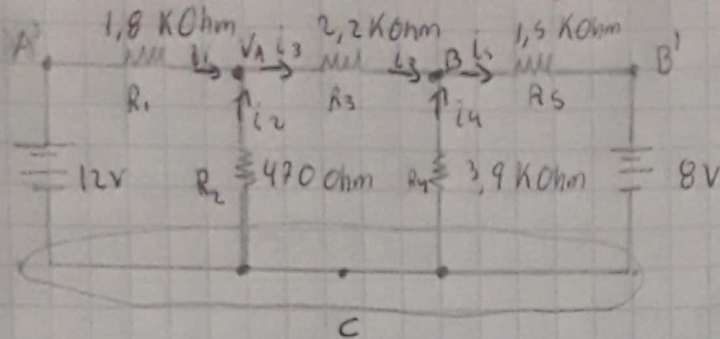 1,8 KOhm 2,2KOhm 1,5 KOhm
A' i1 VA i3 i3 B i5 B'
R1 R3 R5
i2 i4
12V R2 470 Ohm R4 3,9 KOhm 8V
C